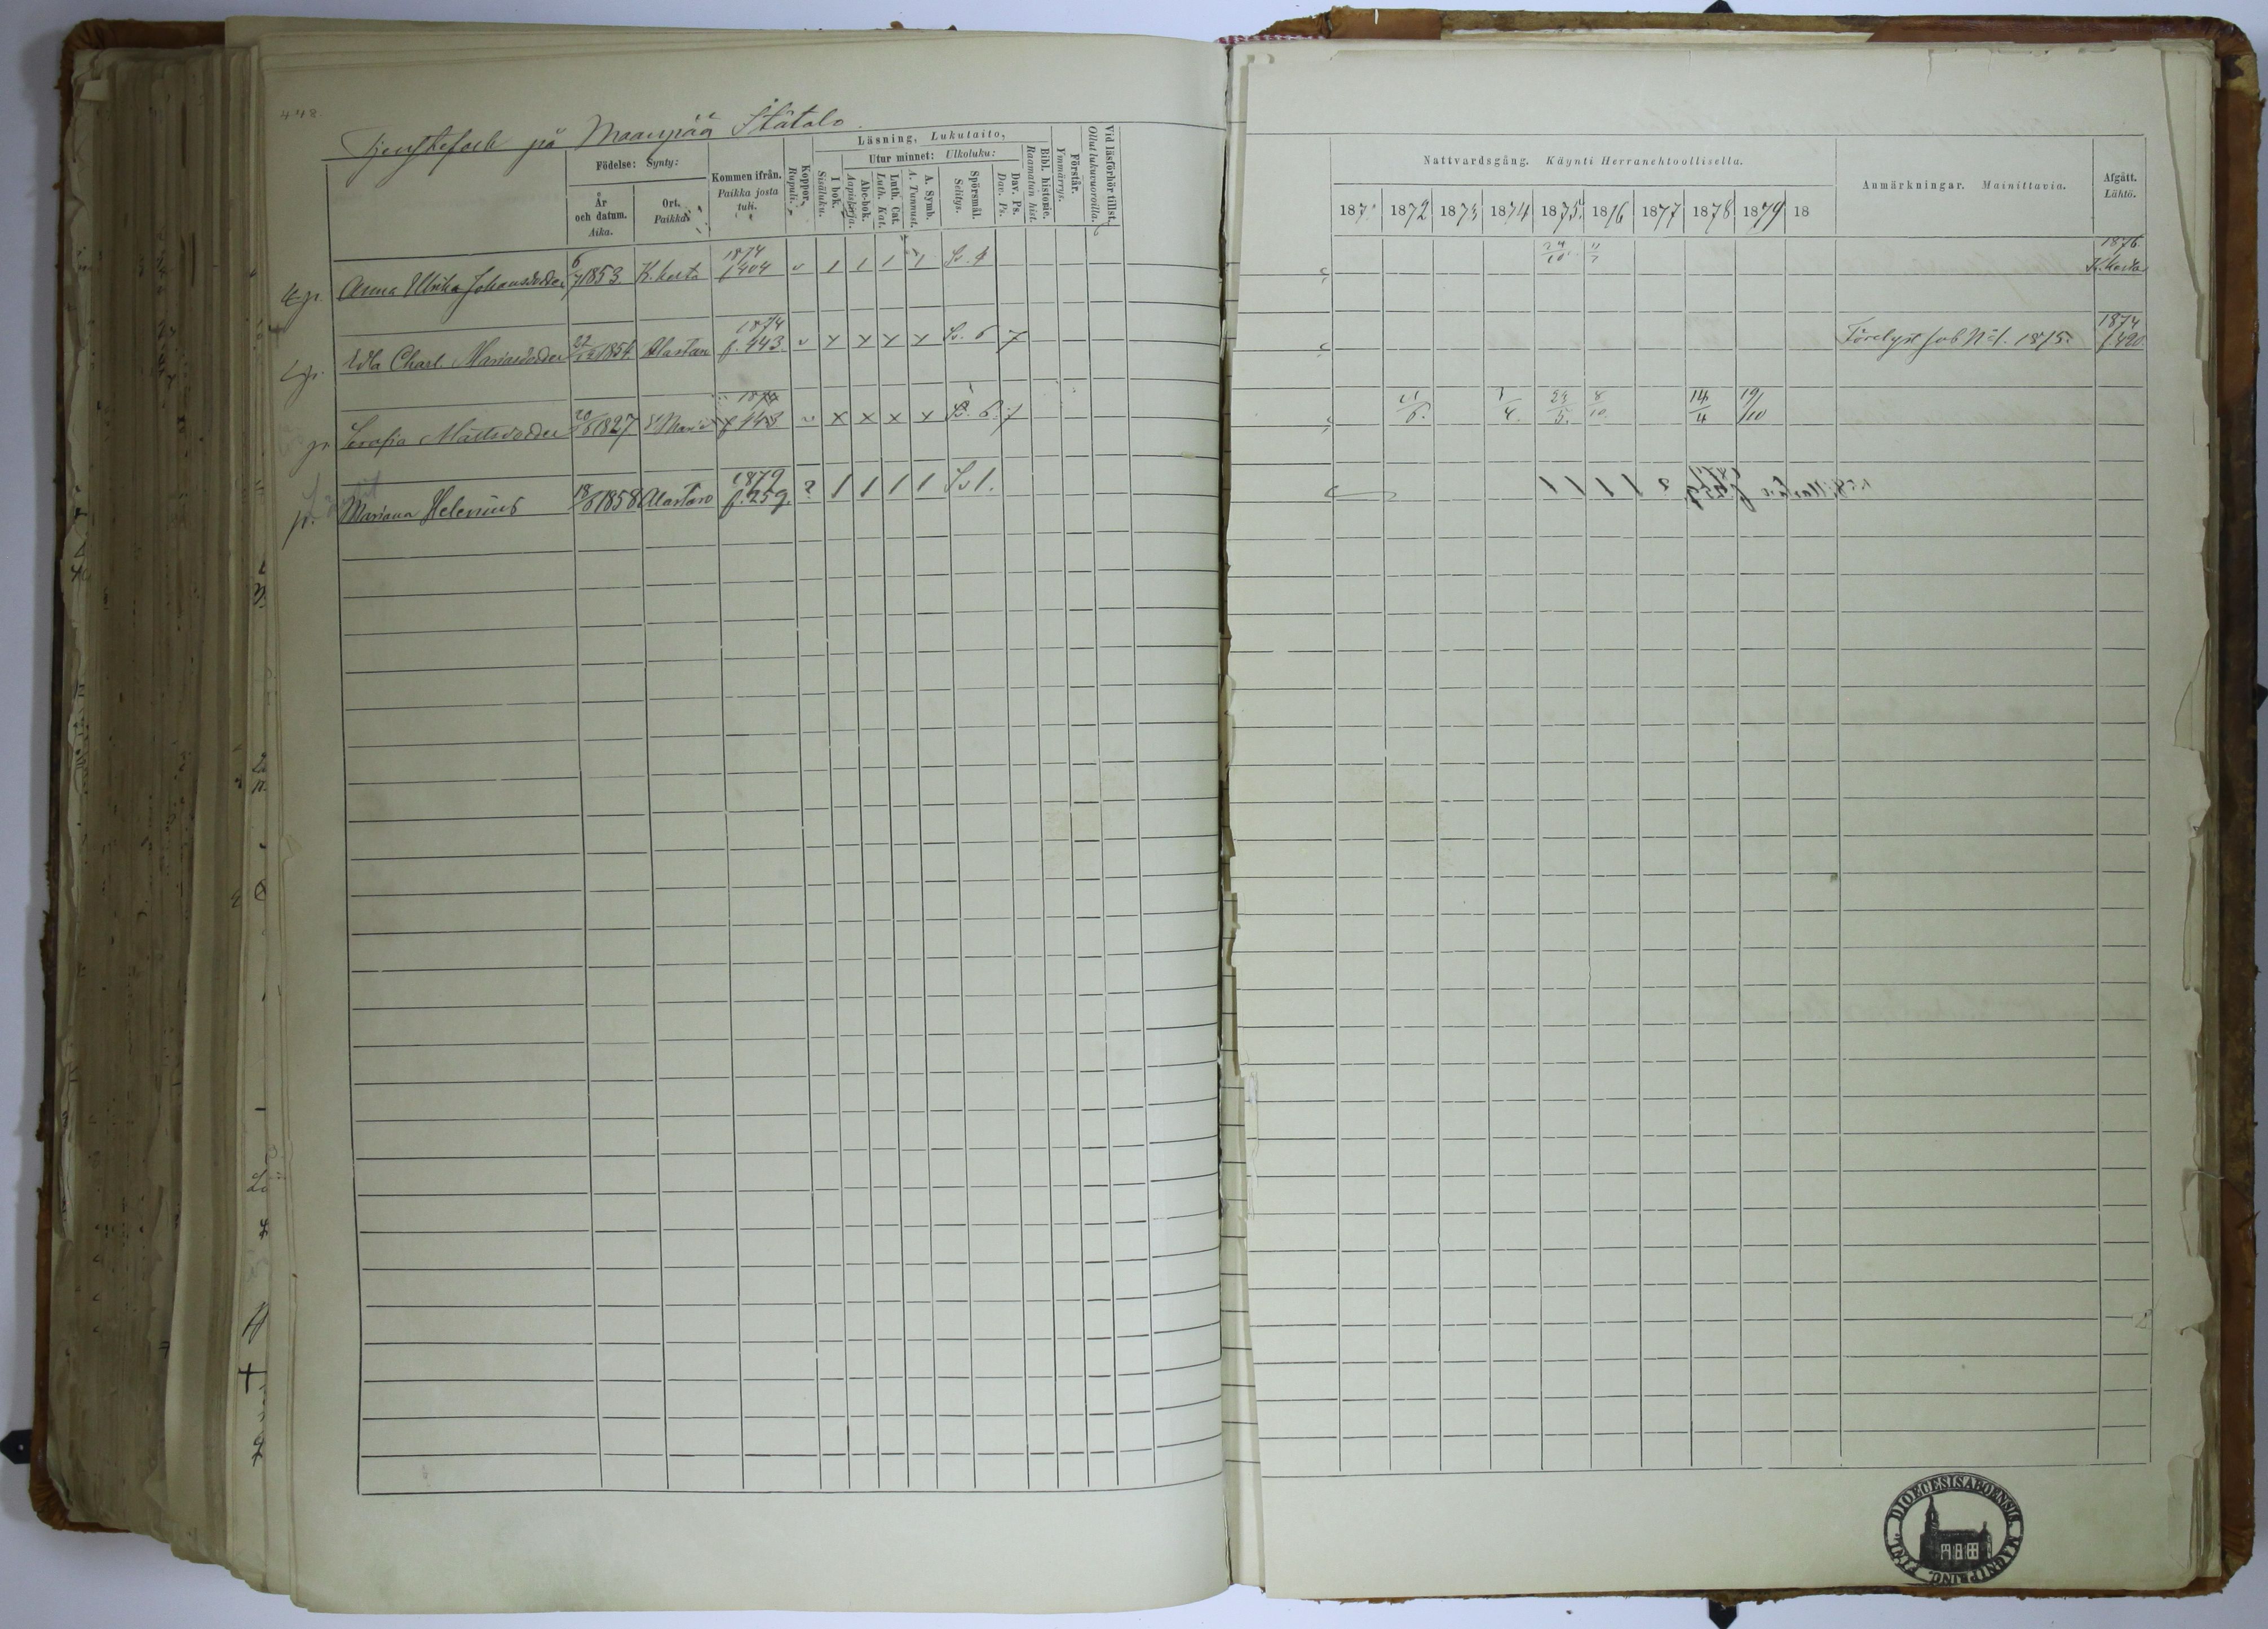 448.
Tjenstefolk på Maanpää Ilätalo.
Födelse: Synty:
År och datum. Aika.
Ort. Paikka
Kommen ifrån. Paikka josta tuli.
Koppor. Rupuli.
Läsning, Lukutaito,
I bok. Sisäluku.
Utur minnet: Ulkoluku:
Abc-bok. Aapiskirja.
Luth. Cat. Luth. Kat.
A. Symb. A. Tunnust.
Spörsmål. Selitys.
Dav. Ps. Dav. Ps.
Bibl. historie. Raamatun hist.
Förstår. Ymmärrys.
Vid läsförhör tillst. Ollut lukuvuoroilla.
Nattvardsgång. Käynti Herranehtoollisella.
187 1872 1873 1874 1875. 1876 1877 1878 1879 18
Anmärkningar. Mainittavia.
Afgått. Lähtö.
Anna Ulrika Johansdotter 6/7 1853. K. karta 1874 f 404 v 1 1 1 1 24/10 11/7 1876
Edla Charl. Mariasdotter 22/12 1854 Alastaro 1874 f. 443 v x x x x Sv. 6 7 Förelyst job N:o 1. 1875. 1874 f 420.
pr. Serafia Mattsdotter 20/6 1827 1874 f 448 v x x x x Sv. 6. 7 23/5. 8/10 14/4 19/10
p. Mariana Helenius 18/6 1858 Alastaro 1879 f. 259. 2 1 1 1 1 Sv 1.
SIGILL. DIOECESIS ABOENSIS. MAGNI PRINC. FINL.